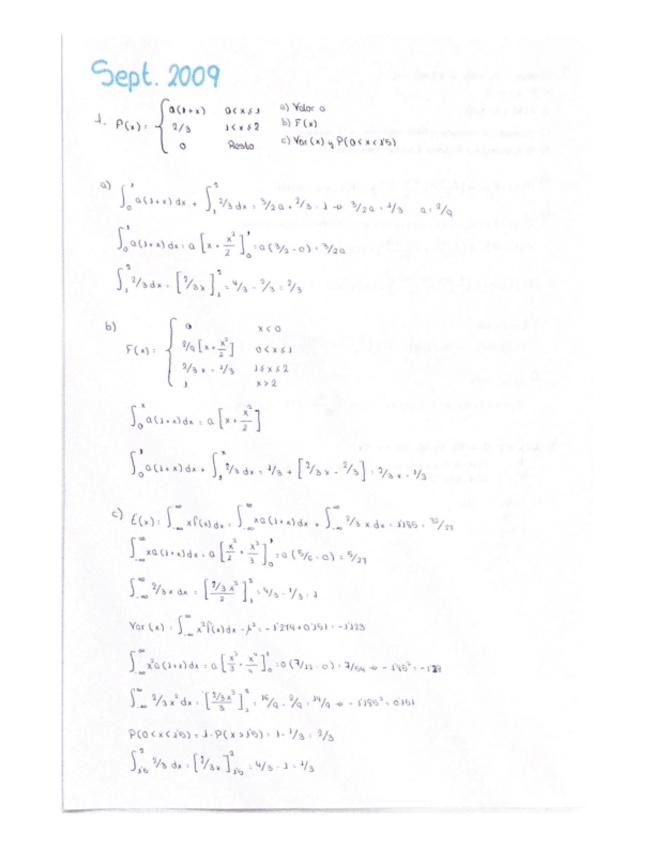 Sept. 2009
1. P(x) = { a(1+x) 0<x≤1 a) Valor a
2/3 1<x≤2 b) F(x)
0 Resto c) Var(x) y P(0<x<1'5)
a) ∫₀¹ a(1+x) dx + ∫₁² 2/3 dx = 3/2 a + 2/3 = 1 → 3/2 a = 1/3 a = 2/9
∫₀¹ a(1+x) dx = a [x + x²/2]₀¹ = a (3/2 - 0) = 3/2 a
∫₁² 2/3 dx = [2/3 x]₁² = 4/3 - 2/3 = 2/3
b)
F(x) = { 0 x<0
2/9 [x + x²/2] 0<x≤1
2/3 x - 1/3 1≤x≤2
1 x>2
∫₀ˣ a(1+x) dx = a [x + x²/2]
∫₀¹ a(1+x) dx + ∫₁ˣ 2/3 dx = 1/3 + [2/3 x - 2/3] = 2/3 x - 1/3
c) E(x) = ∫₋∞^∞ x f(x) dx = ∫₋∞^∞ x a(1+x) dx + ∫₋∞^∞ 2/3 x dx = 1'185 = 32/27
∫₋∞^∞ x a(1+x) dx = a [x²/2 + x³/3]₀¹ = a (5/6 - 0) = 5/27
∫₋∞^∞ 2/3 x dx = [2/3 x²/2]₁² = 4/3 - 1/3 = 1
Var(x) = ∫₋∞^∞ x² f(x) dx - μ² = -1'274 + 0'151 = -1'123
∫₋∞^∞ x² a(1+x) dx = a [x³/3 + x⁴/4]₀¹ = a (7/12 - 0) = 7/54 → - 1'185² = -1'27
∫₋∞^∞ 2/3 x² dx = [2/3 x³/3]₁² = 16/9 - 2/9 = 14/9 → - 1'185² = 0'151
P(0<x<1'5) = 1 - P(x>1'5) = 1 - 1/3 = 2/3
∫₁'₅² 2/3 dx = [2/3 x]₁'₅² = 4/3 - 1 = 1/3